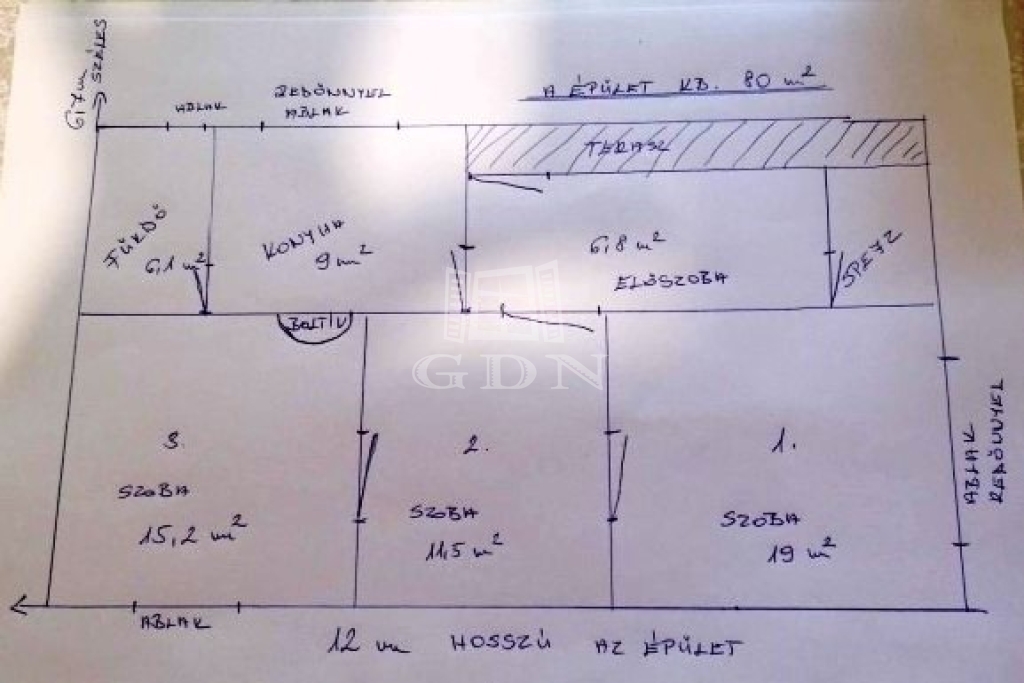 6,7m SZÉLES
ABLAK
REDŐNNYEL
ABLAK
A ÉPÜLET KB. 80 m²
TERASZ
FÜRDŐ
6,1 m²
KONYHA
9 m²
6,8 m²
ELŐSZOBA
SPEJZ
BOLTÍV
GDN
3.
SZOBA
15,2 m²
2.
SZOBA
11,5 m²
1.
SZOBA
19 m²
ABLAK
REDŐNNYEL
ABLAK
12 m HOSSZÚ AZ ÉPÜLET